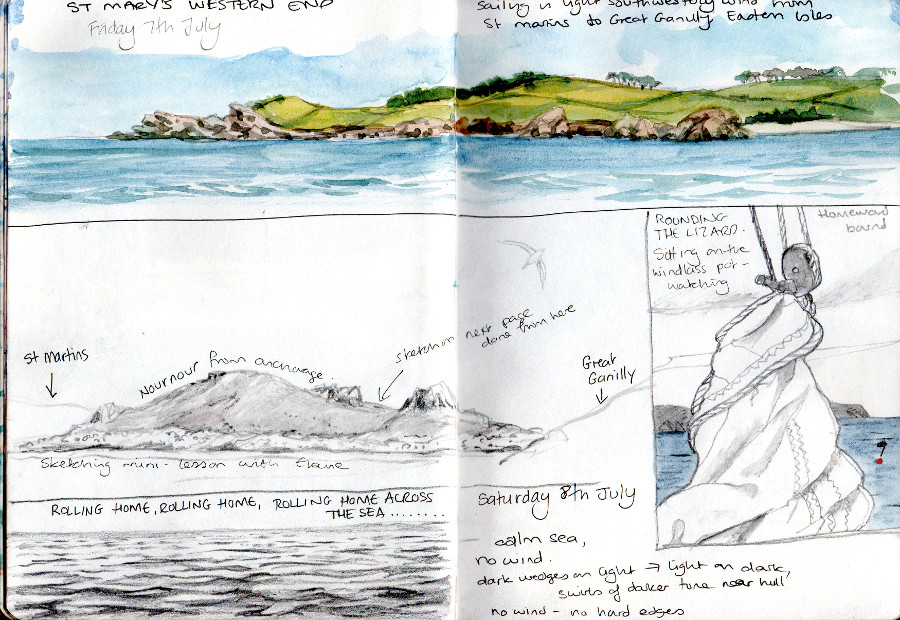 ST MARY'S WESTERN END
Friday 7th July
Sailing in light southwesterly wind from
St Martins to Great Ganilly Eastern Isles
St Martins
Nournour from anchorage.
sketch on next page
done from here
Great
Ganilly
Sketching mini-lesson with Elaine
ROUNDING
THE LIZARD.
Sitting on the
windlass pot-
watching
Homeward
bound
ROLLING HOME, ROLLING HOME, ROLLING HOME ACROSS
THE SEA........
Saturday 8th July
calm sea,
no wind.
dark wedges on light → light on dark,
swirls of darker tone near hull
no wind - no hard edges